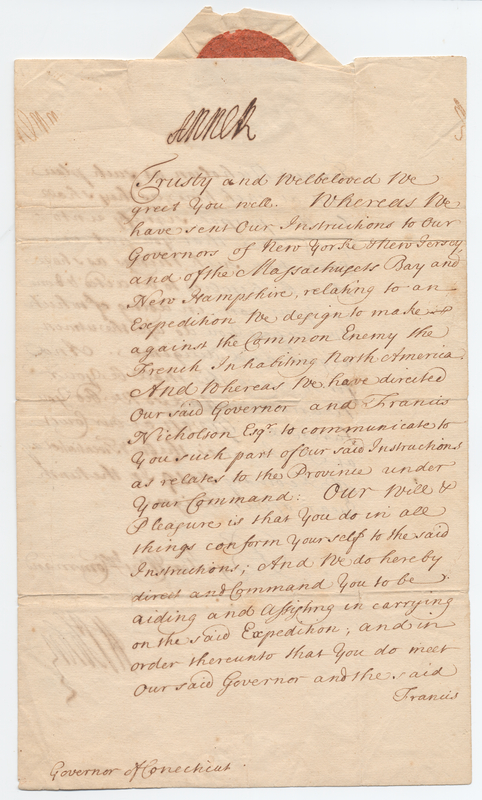 ANNE R
Trusty and Welbeloved We
greet You well. Whereas We
have sent Our Instructions to Our
Governors of New Yorke & New Jersey
and of the Massachusets Bay and
New Hampshire, relating to an
Expedition We design to make
against the Common Enemy the
French Inhabiting North America.
And Whereas We have directed
Our said Governor and Francis
Nicholson Esqr. to communicate to
You such part of Our said Instructions
as relates to the Province under
Your Command: Our Will &
Pleasure is that You do in all
things conform Yourself to the said
Instructions; And We do hereby
direct and Command You to be
aiding and Assisting in carrying
on the said Expedition; and in
order thereunto that You do meet
Our said Governor and the said
Francis
Governor of Conecticut.